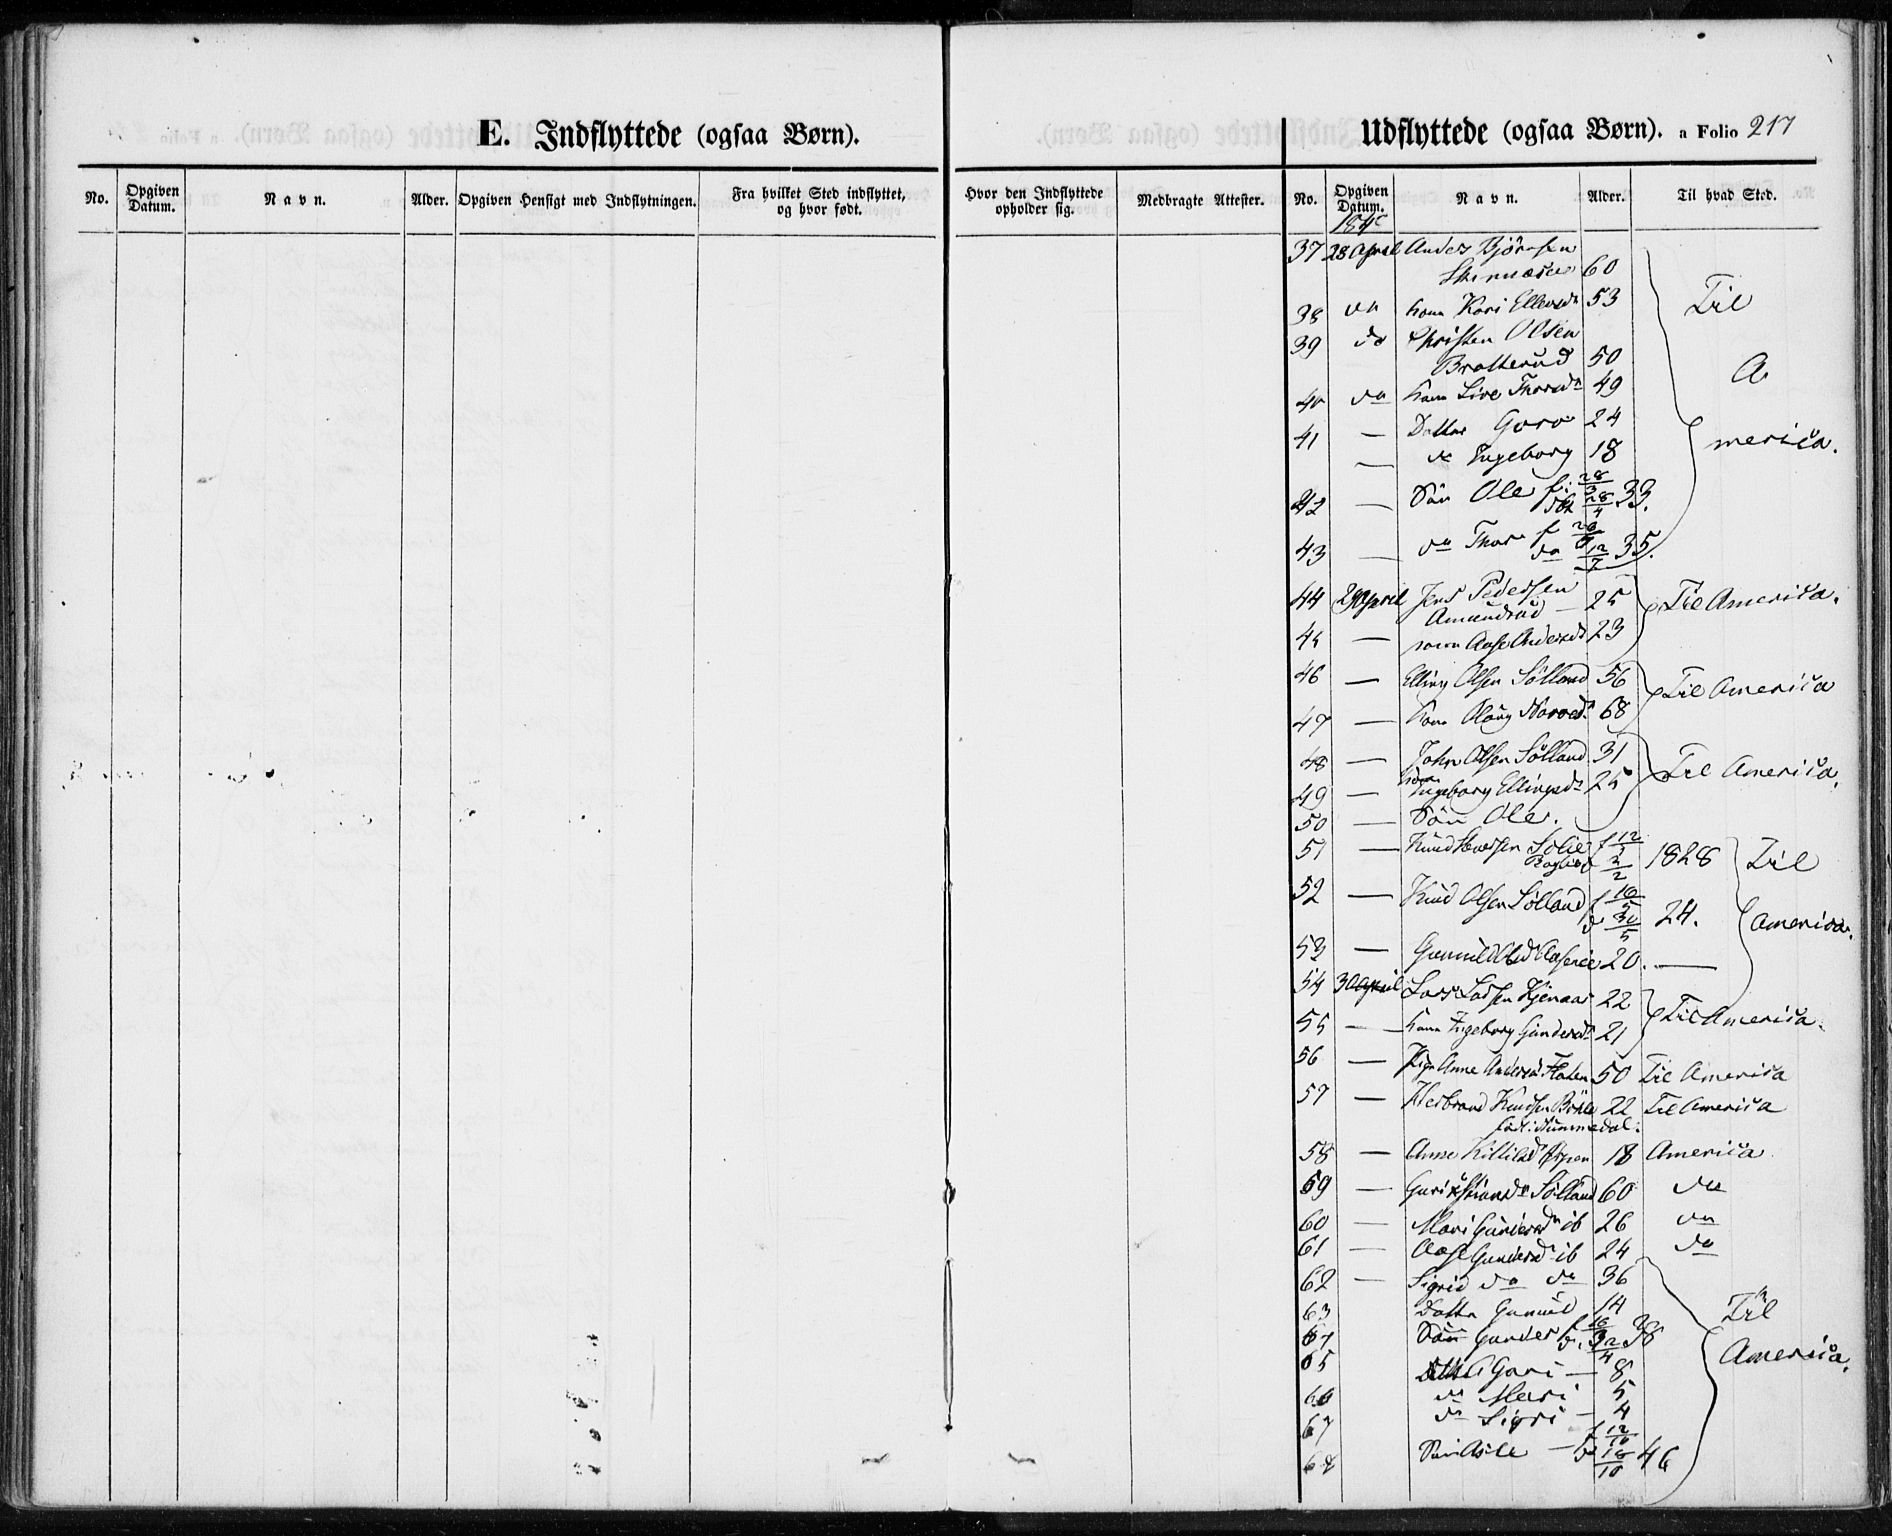 E. Indflyttede (ogsaa Børn).
Udflyttede (ogsaa Børn). a Folio 217
No. Opgiven Datum. Navn. Alder. Opgiven Hensigt med Indflytningen. Fra hvilket Sted indflyttet, og hvor født. Hvor den Indflyttede opholder sig. Medbragte Attester. No. Opgiven Datum. Navn. Alder. Til hvad Sted.
37 28 April Anders Bjørnsen
60
38 do Kone Kari Ellevsdr 53 Til
39 do Christen Olsen
Bratterud 50
40 do Kone Live Thorsdr 49 A
41 — Datter Goro 24
— do Ingeborg 18 merica.
42 — Søn Ole f: 28/3 28/4 33.
43 — do Thor f do 12/7 35.
44 29 April Jens Pedersen
Amundrud — 25 Til America.
45 — Kone Aase Andersdr 23
46 — Elling Olsen Sølland 56 Til America
47 — Kone 68
48 — John Olsen Sølland 31
Kone
49 — Ingeborg Ellingsdr 25 Til America.
50 — Søn Ole.
51 — Knud Solie f 12/1 2/2 1828 Til
52 — Knud Olsen Sølland f 10/5 d 30/5 24. America.
53 — Gunnild 20. —
54 30 April Lars Larsen 22
55 — Kone Ingeborg Gundersdr 21 Til America.
56 — Pige Anne Andersdr Floten 50 Til America
57 — Herbrand Knudsen 22 Til America
født i Nummedal.
58 — Anne 18 America
59 — Guri Sølland 60 do
60 — Mari Gundersdr ib 26 do
61 — Aase Gundersdr ib 24 do
62 — Sigrid do do 36
63 Datter Gunnild 14 Til
64 Søn Gunder f 10/3 d. 2/4 38
65 Datter Guri — 8 America.
66 do Mari 5
67 do Sigri — 4
68 Søn Asle — f 12/10 d 18/10 46